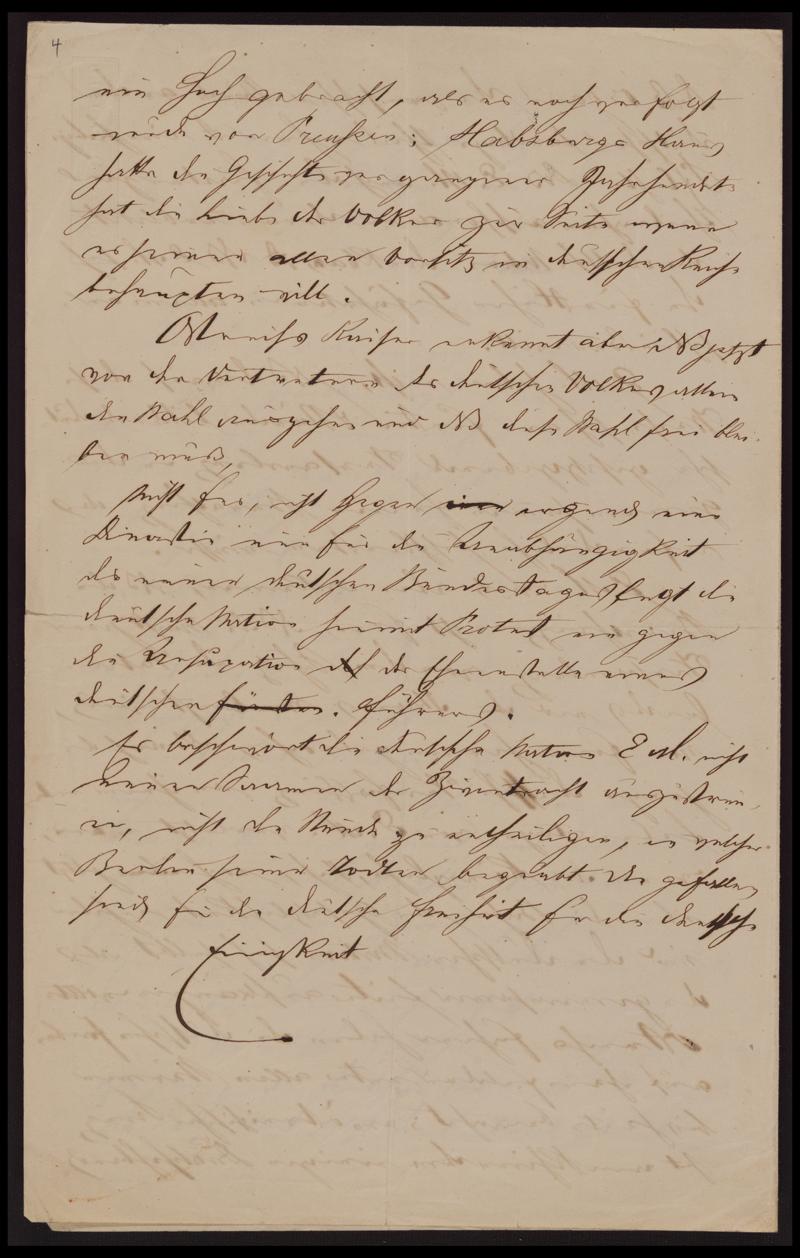 4
ein Hoch gebracht, als es noch verfolgt
wurde von Preußen; Habsburgs Haus
hatte die Geschichte vergangener Jahrhunderte
hat die Liebe der Völker zur Seite wenn
es seinen alten Vorsitz im deutschen Reiche
behaupten will.
Östreichs Kaiser erkennt aber daß jetzt
von den Vertretern des deutschen Volkes allein
die Wahl ausgehen und daß diese Wahl frei blei-
ben muß,
Nicht für, nicht gegen irgend eine
Dinastie nur für die Unabhängigkeit
des neuen deutschen Bundestages legt die
deutsche Nation hiermit Protest ein gegen
die Usurpation der Ehrenstelle eines
deutschen Fürsten. Führers.
Es beschwört die deutsche Nation E M. nicht
neuen Saamen der Zwietracht auszustreu-
en, nicht die Stunde zu entheiligen, in welcher
Berlin seine Todten begräbt die gefallen
sind für die deutsche Freiheit für die deutsche
Einigkeit